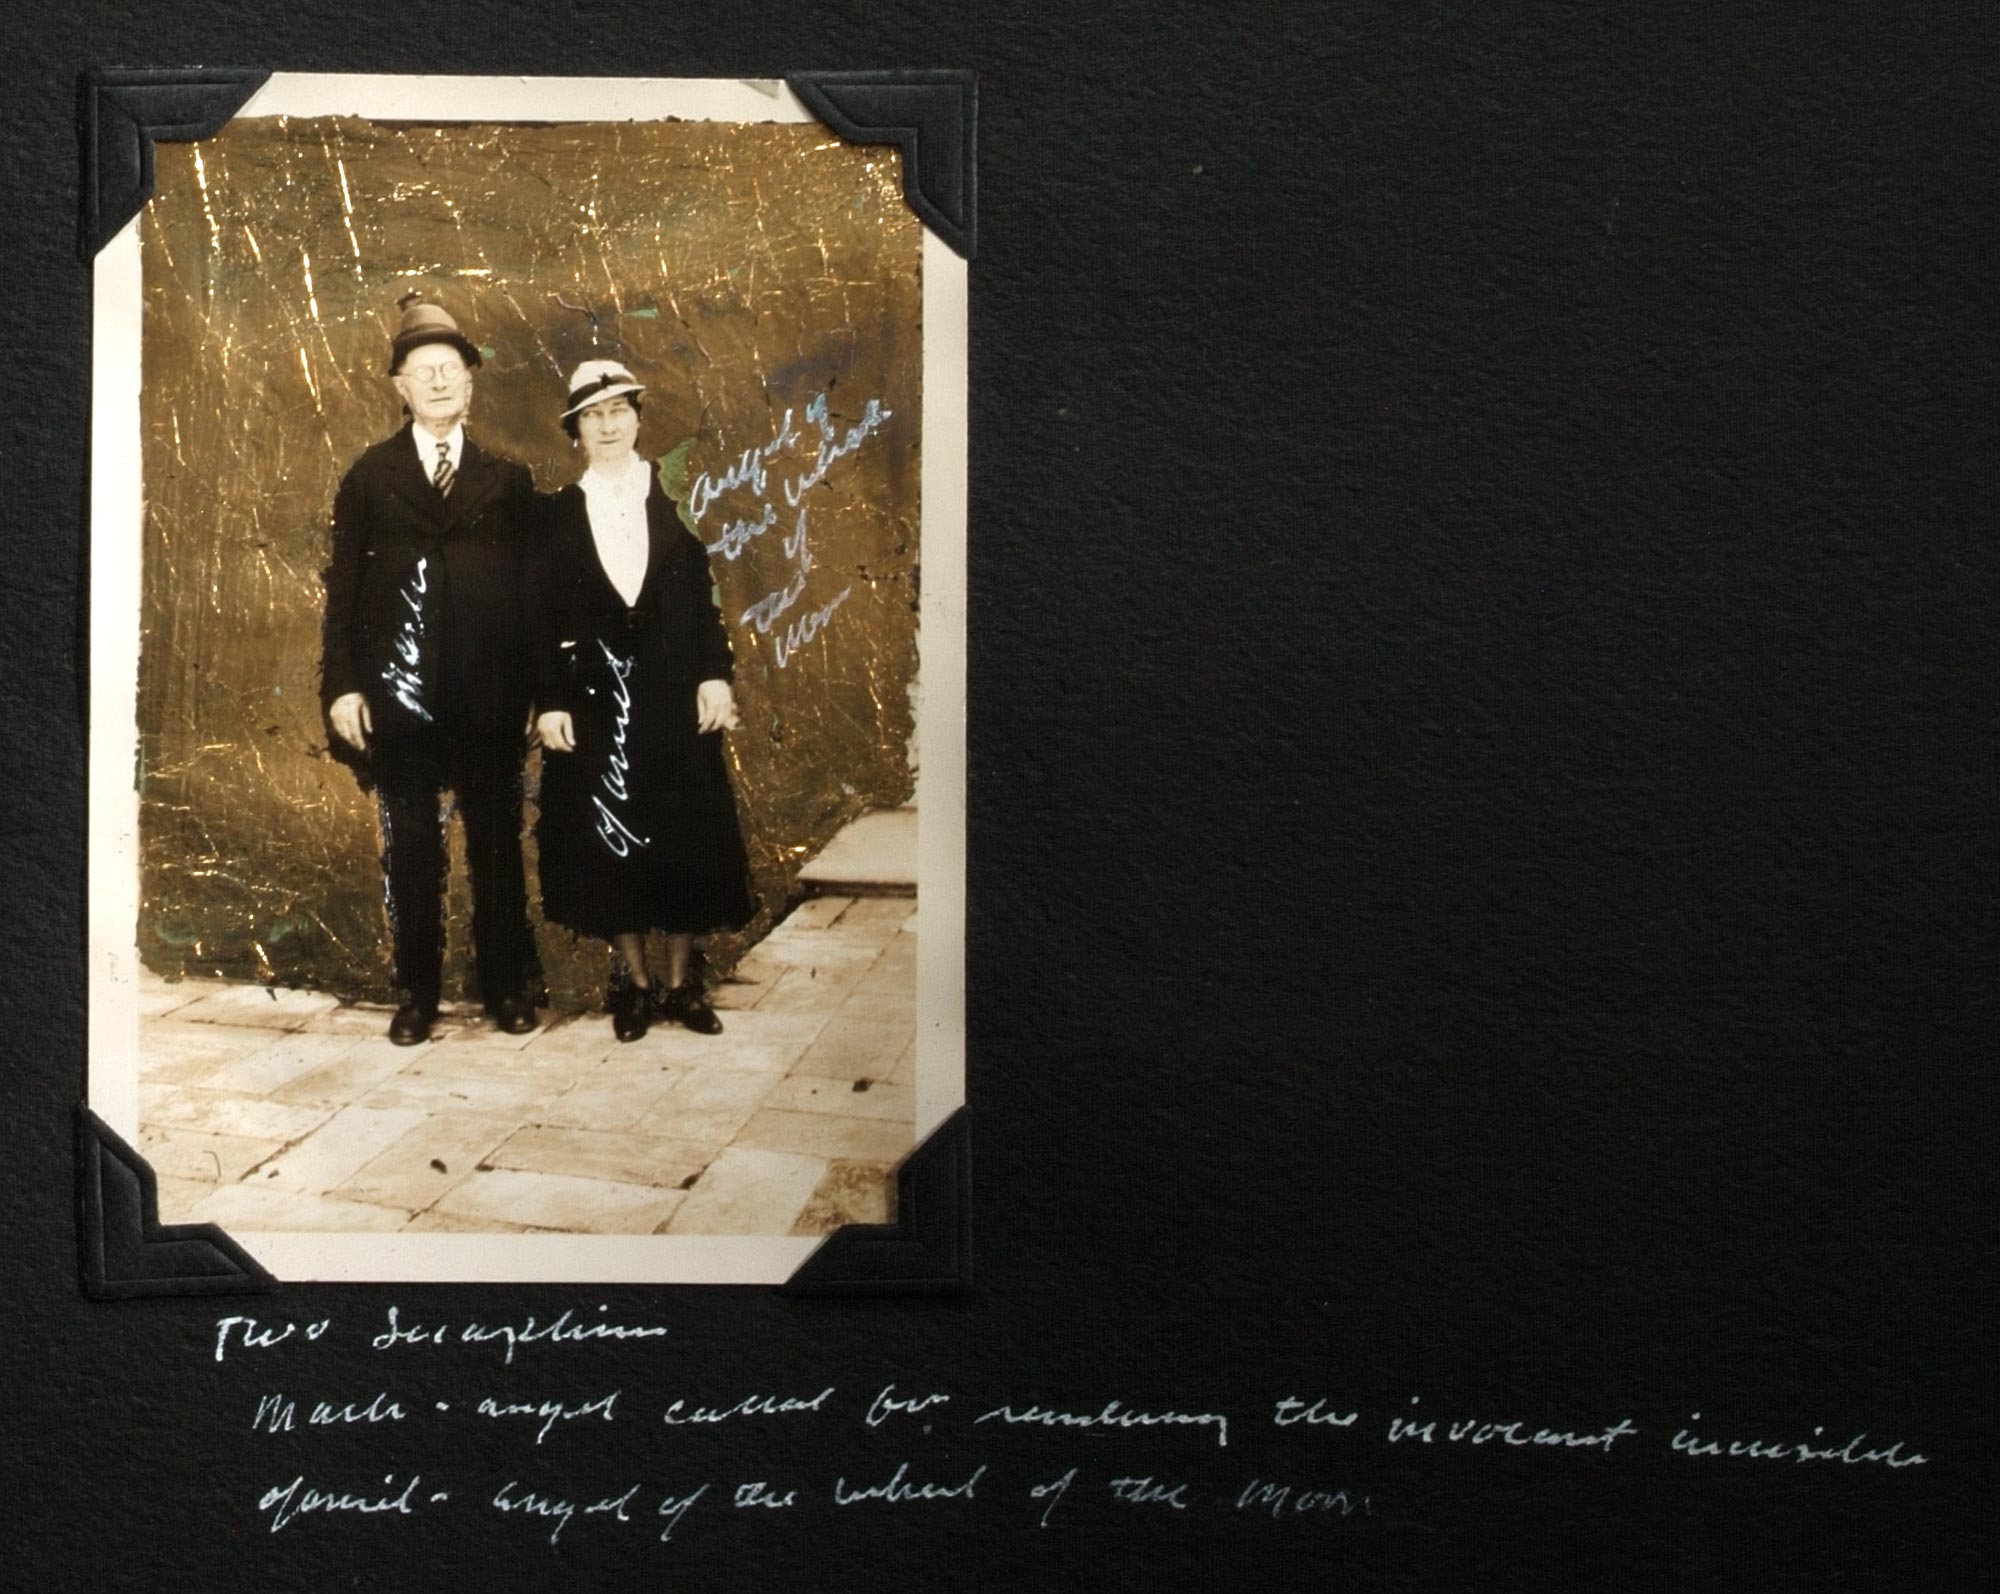 Mach
Ofaniel
angel of
the wheel
of
the
Moon
Two Seraphim
Mach - angel called for rendering the invocant invisible
Ofaniel - angel of the wheel of the Moon